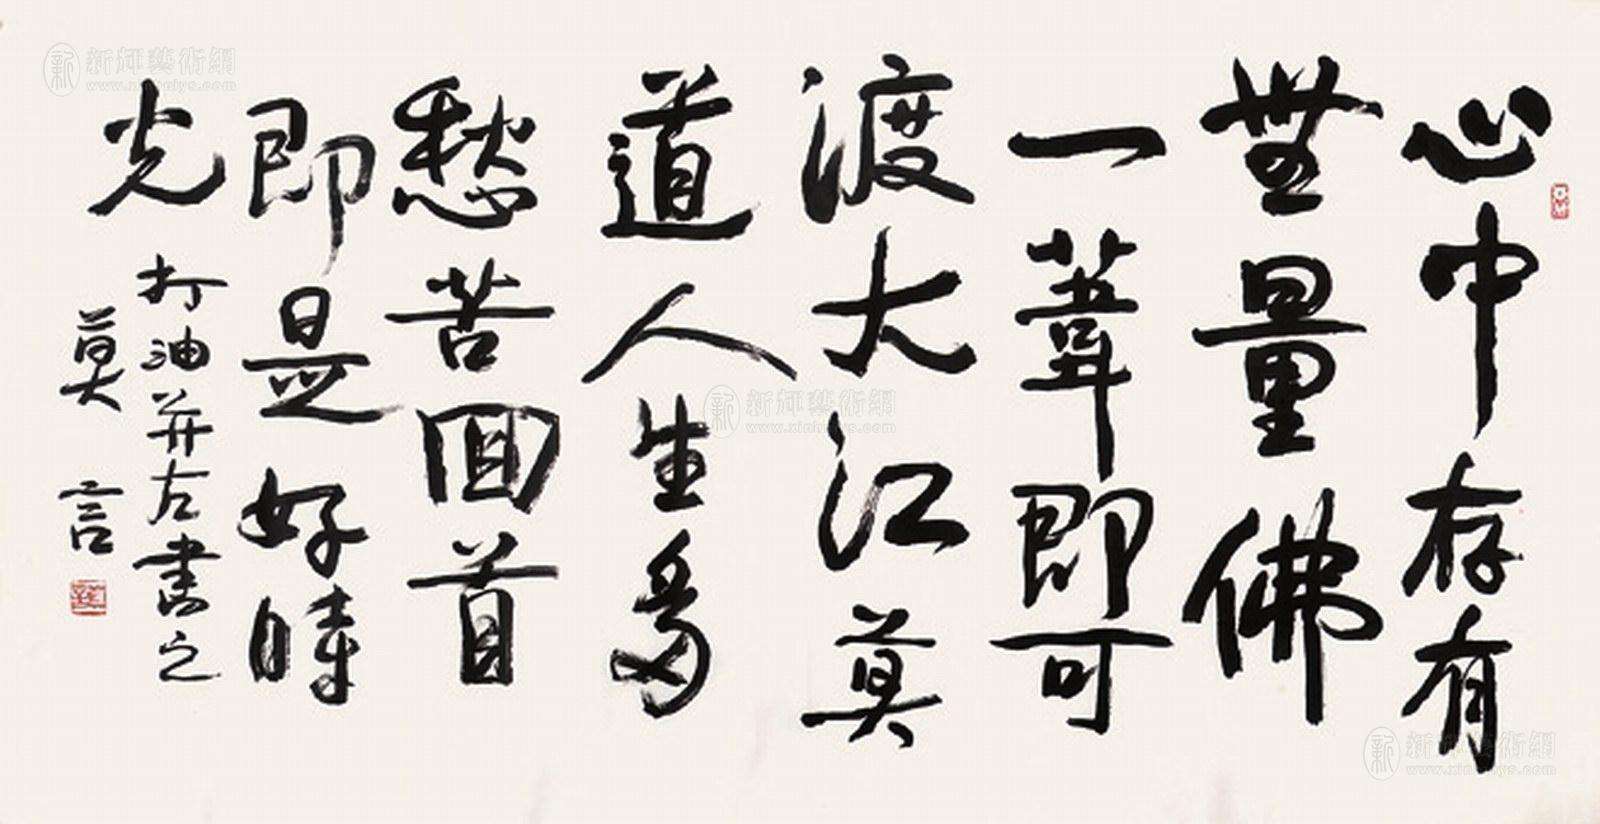 心中存有
無量佛
一葦即可
渡大江莫
道人生多
愁苦回首
即是好時
光
打油并左書之
莫言
新輝藝術網
www.xinhuiys.com
新輝藝術網
www.xinhuiys.com
新輝藝術網
www.xinhuiys.com